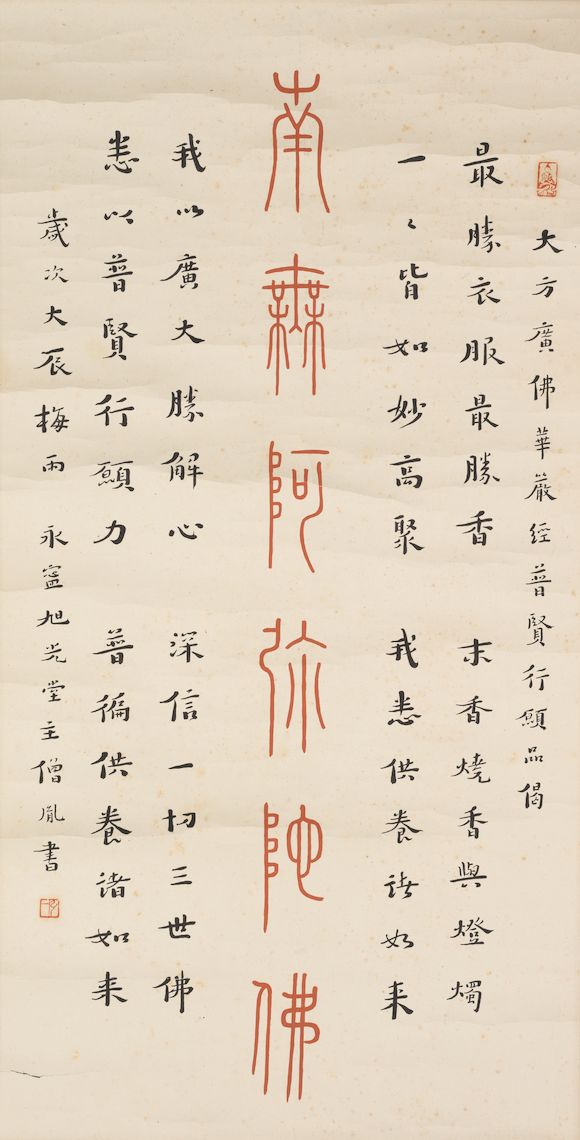 大方廣佛華嚴經普賢行願品偈
最勝衣服最勝香 末香燒香與燈燭
一々皆如妙高聚 我悉供養諸如来
南無阿彌陀佛
我以廣大勝解心 深信一切三世佛
悉以普賢行願力 普徧供養諸如来
歲次大辰梅雨 永寧旭光堂主僧胤書